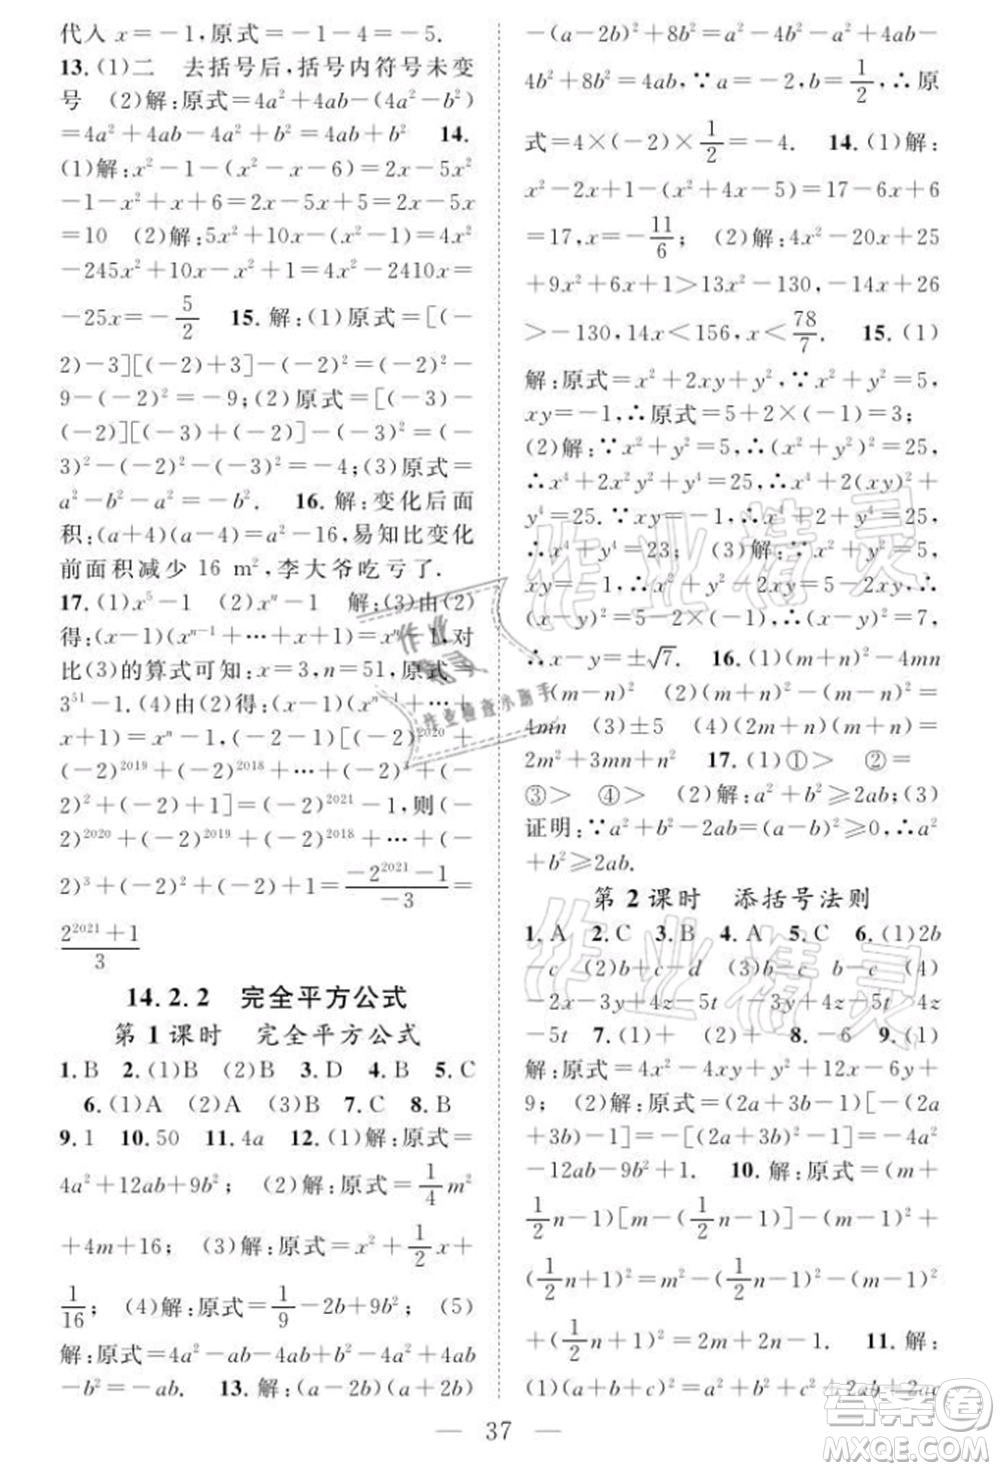 代入 x=-1,原式=-1-4=-5.
13.(1)二 去括号后,括号内符号未变
号 (2)解:原式=4a²+4ab-(4a²-b²)
=4a²+4ab-4a²+b²=4ab+b² 14.
(1)解:x²-1-(x²-x-6)=2x-5x²
-1-x²+x+6=2x-5x+5=2x-5x
=10 (2)解:5x²+10x-(x²-1)=4x²
-245x²+10x-x²+1=4x²-2410x=
-25x=-5/2 15.解:(1)原式=[(-
2)-3][(-2)+3]-(-2)²=(-2)²-
9-(-2)²=-9;(2)原式=[(-3)-
(-2)][(-3)+(-2)]-(-3)²=(-
3)²-(-2)²-(-3)²=-4;(3)原式=
a²-b²-a²=-b². 16.解:变化后面
积:(a+4)(a-4)=a²-16,易知比变化
前面积减少 16 m²,李大爷吃亏了.
17.(1)x⁵-1 (2)xⁿ-1 解:(3)由(2)
得:(x-1)(xⁿ⁻¹+…+x+1)=xⁿ-1,对
比(3)的算式可知:x=3,n=51,原式=
3⁵¹-1.(4)由(2)得:(x-1)(xⁿ⁻¹+…+
x+1)=xⁿ-1,(-2-1)[(-2)²⁰²⁰+
(-2)²⁰¹⁹+(-2)²⁰¹⁸+…+(-2)³+(-
2)²+(-2)+1]=(-2)²⁰²¹-1,则(-
2)²⁰²⁰+(-2)²⁰¹⁹+(-2)²⁰¹⁸+…+(-
2)³+(-2)²+(-2)+1=(-2²⁰²¹-1)/(-3)=
(2²⁰²¹+1)/3
14.2.2 完全平方公式
第1课时 完全平方公式
1.B 2.(1)B (2)B 3.D 4.B 5.C
6.(1)A (2)A (3)B 7.C 8.B
9.1 10.50 11.4a 12.(1)解:原式=
4a²+12ab+9b²; (2)解:原式=1/4m²
+4m+16; (3)解:原式=x²+1/2x+
1/16; (4)解:原式=1/9-2b+9b²; (5)
解:原式=4a²-ab-4ab+b²-4a²+4ab
-b²=-ab. 13.解:(a-2b)(a+2b)
-(a-2b)²+8b²=a²-4b²-a²+4ab-
4b²+8b²=4ab,∵a=-2,b=1/2,∴原
式=4×(-2)×1/2=-4. 14.(1)解:
x²-2x+1-(x²+4x-5)=17-6x+6
=17,x=-11/6; (2)解:4x²-20x+25
+9x²+6x+1>13x²-130,-14x+26
>-130,14x<156,x<78/7. 15.(1)
解:原式=x²+2xy+y²,∵x²+y²=5,
xy=-1,∴原式=5+2×(-1)=3;
(2)解:∵x²+y²=5,∴(x²+y²)²=25,
∴x⁴+2x²y²+y⁴=25,∴x⁴+2(xy)²+
y⁴=25.∵xy=-1,∴x⁴+2+y⁴=25,
∴x⁴+y⁴=23; (3)解:∵(x-y)²=x²-
2xy+y²=x²+y²-2xy=5-2×(-1)=7,
∴x-y=±√7. 16.(1)(m+n)²-4mn
=(m-n)² (2)(m+n)²=(m-n)²+
4mn (3)±5 (4)(2m+n)(m+n)=
2m²+3mn+n² 17.(1)①> ②=
③> ④> (2)解:a²+b²≥2ab;(3)
证明:∵a²+b²-2ab=(a-b)²≥0,∴a²
+b²≥2ab.
第2课时 添括号法则
1.A 2.C 3.B 4.A 5.C 6.(1)2b
-c (2)2b-c (3)a+b-c (4)a-
b-2x-3x-4y+5t-2x-3x-4y
-5t 7.(1)+ (2)+ 8.-6 9.(1)
解:原式=4x²-4xy+y²+12x-6y+
9; (2)解:原式=(2a+3b-1)[-(2a
+3b-1)]=-[(2a+3b)-1]²=-4a²
-12ab-9b²+4a+6b-1. 10.解:原式=(m+
1/2n-1)[m-(1/2n-1)]-(m-2)²+
(1/2n+1)²=m²-(1/2n-1)²-(m-2)²
+(1/2n+1)²=4m+2n-4. 11.解:
(1)(a+b+c)²=a²+b²+c²+2ab+2ac
37
作业精灵
作业检查小助手
答案圈
MXQE.COM